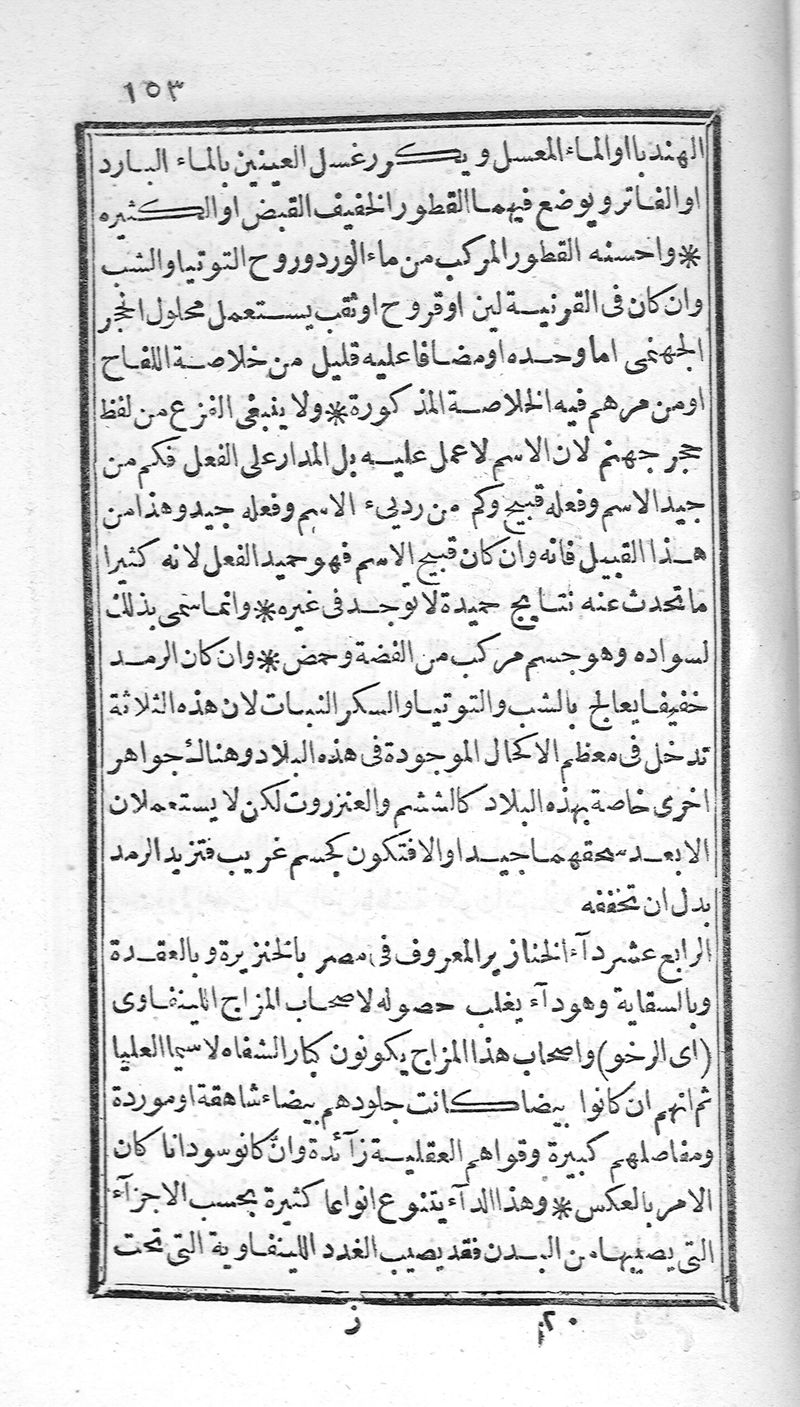 ١٥٣
الهندبا او الماء المعسل ويكرر غسل العينين بالماء البارد
او الفاتر ويوضع فيهما القطور الخفيف القبض او الكثيره
* واحسنه القطور المركب من ماء الورد وروح التوتيا والشب
وان كان فى القرنية لين او قروح او ثقب يستعمل محلول الحجر
الجهنمى اما وحده او مضافا عليه قليل من خلاصة اللفاح
او من مرهم فيه الخلاصة المذكورة * ولا ينبغى الفزع من لفظ
حجر جهنم لان الاسم لا عمل عليه بل المدار على الفعل فكم من
جيد الاسم وفعله قبيح وكم من رديىء الاسم وفعله جيد وهذا من
هذا القبيل فانه وان كان قبيح الاسم فهو حميد الفعل لانه كثيرا
ما تحدث عنه نتايج حميدة لا توجد فى غيره * وانما سمى بذلك
لسواده وهو جسم مركب من الفضة وحمض * وان كان الرمد
خفيفا يعالج بالشب والتوتيا والسكر النبات لان هذه الثلاثة
تدخل فى معظم الاكحال الموجودة فى هذه البلاد وهناك جواهر
اخرى خاصة بهذه البلاد كالششم والعنزروت لكن لا يستعملان
الا بعد سحقهما جيدا والا فتكون كجسم غريب فتزيد الرمد
بدل ان تخففه
الرابع عشر دآء الخنازير المعروف فى مصر بالخنزيرة وبالعقدة
وبالسقاية وهو دآء يغلب حصوله لاصحاب المزاج اللينفاوى
(اى الرخو) واصحاب هذا المزاج يكونون كبار الشفاه لاسيما العليا
ثم انهم ان كانوا بيضا كانت جلودهم بيضاء شاهقة او موردة
ومفاصلهم كبيرة وقواهم العقلية زآئدة وان كانو سودانا كان
الامر بالعكس * وهذا الدآء يتنوع انواعا كثيرة بحسب الاجزآء
التى يصيبها من البدن فقد يصيب الغدد اللينفاوية التى تحت
٢٠ ز